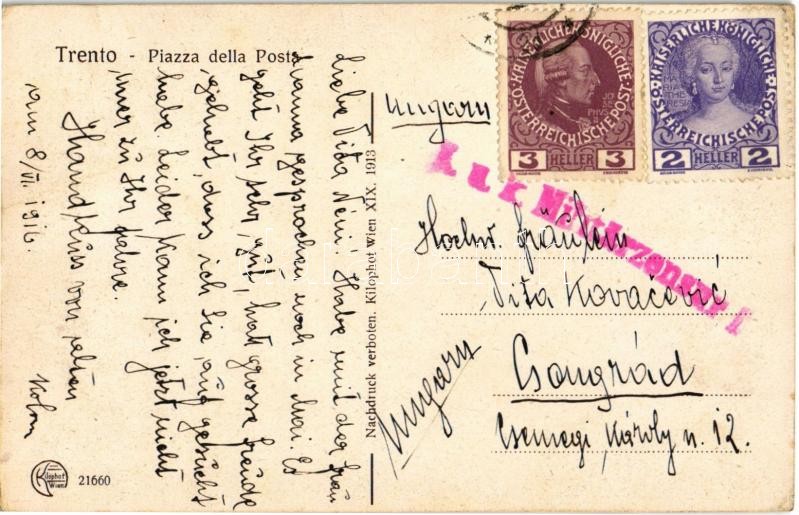 Trento - Piazza della Posta
Liebe Vida Néni! Habe mit der Frau
Mama gesprochen noch in Mai. Es
geht Ihr sehr gut, hat grosse Freude
gehabt, dass ich Sie aufgesucht
habe. Leider kann ich jetzt nicht
mer zu Ihr fahre.
Handkuss von
am 8/VI. 1916.
Kilophot
Wien
21660
Nachdruck verboten. Kilophot Wien XIX. 1913
KAISERLICHE KÖNIGLICHE
ÖSTERREICHISCHE POST
3 HELLER 3
KAISERLICHE KÖNIGLICHE
MARIA THERESIA
ÖSTERREICHISCHE POST
2 HELLER 2
Ungarn
k u k Militärzensur
Hochw. Fräulein
Vida Kovačević
Csongrád
Csemegi Károly u. 12.
Ungarn